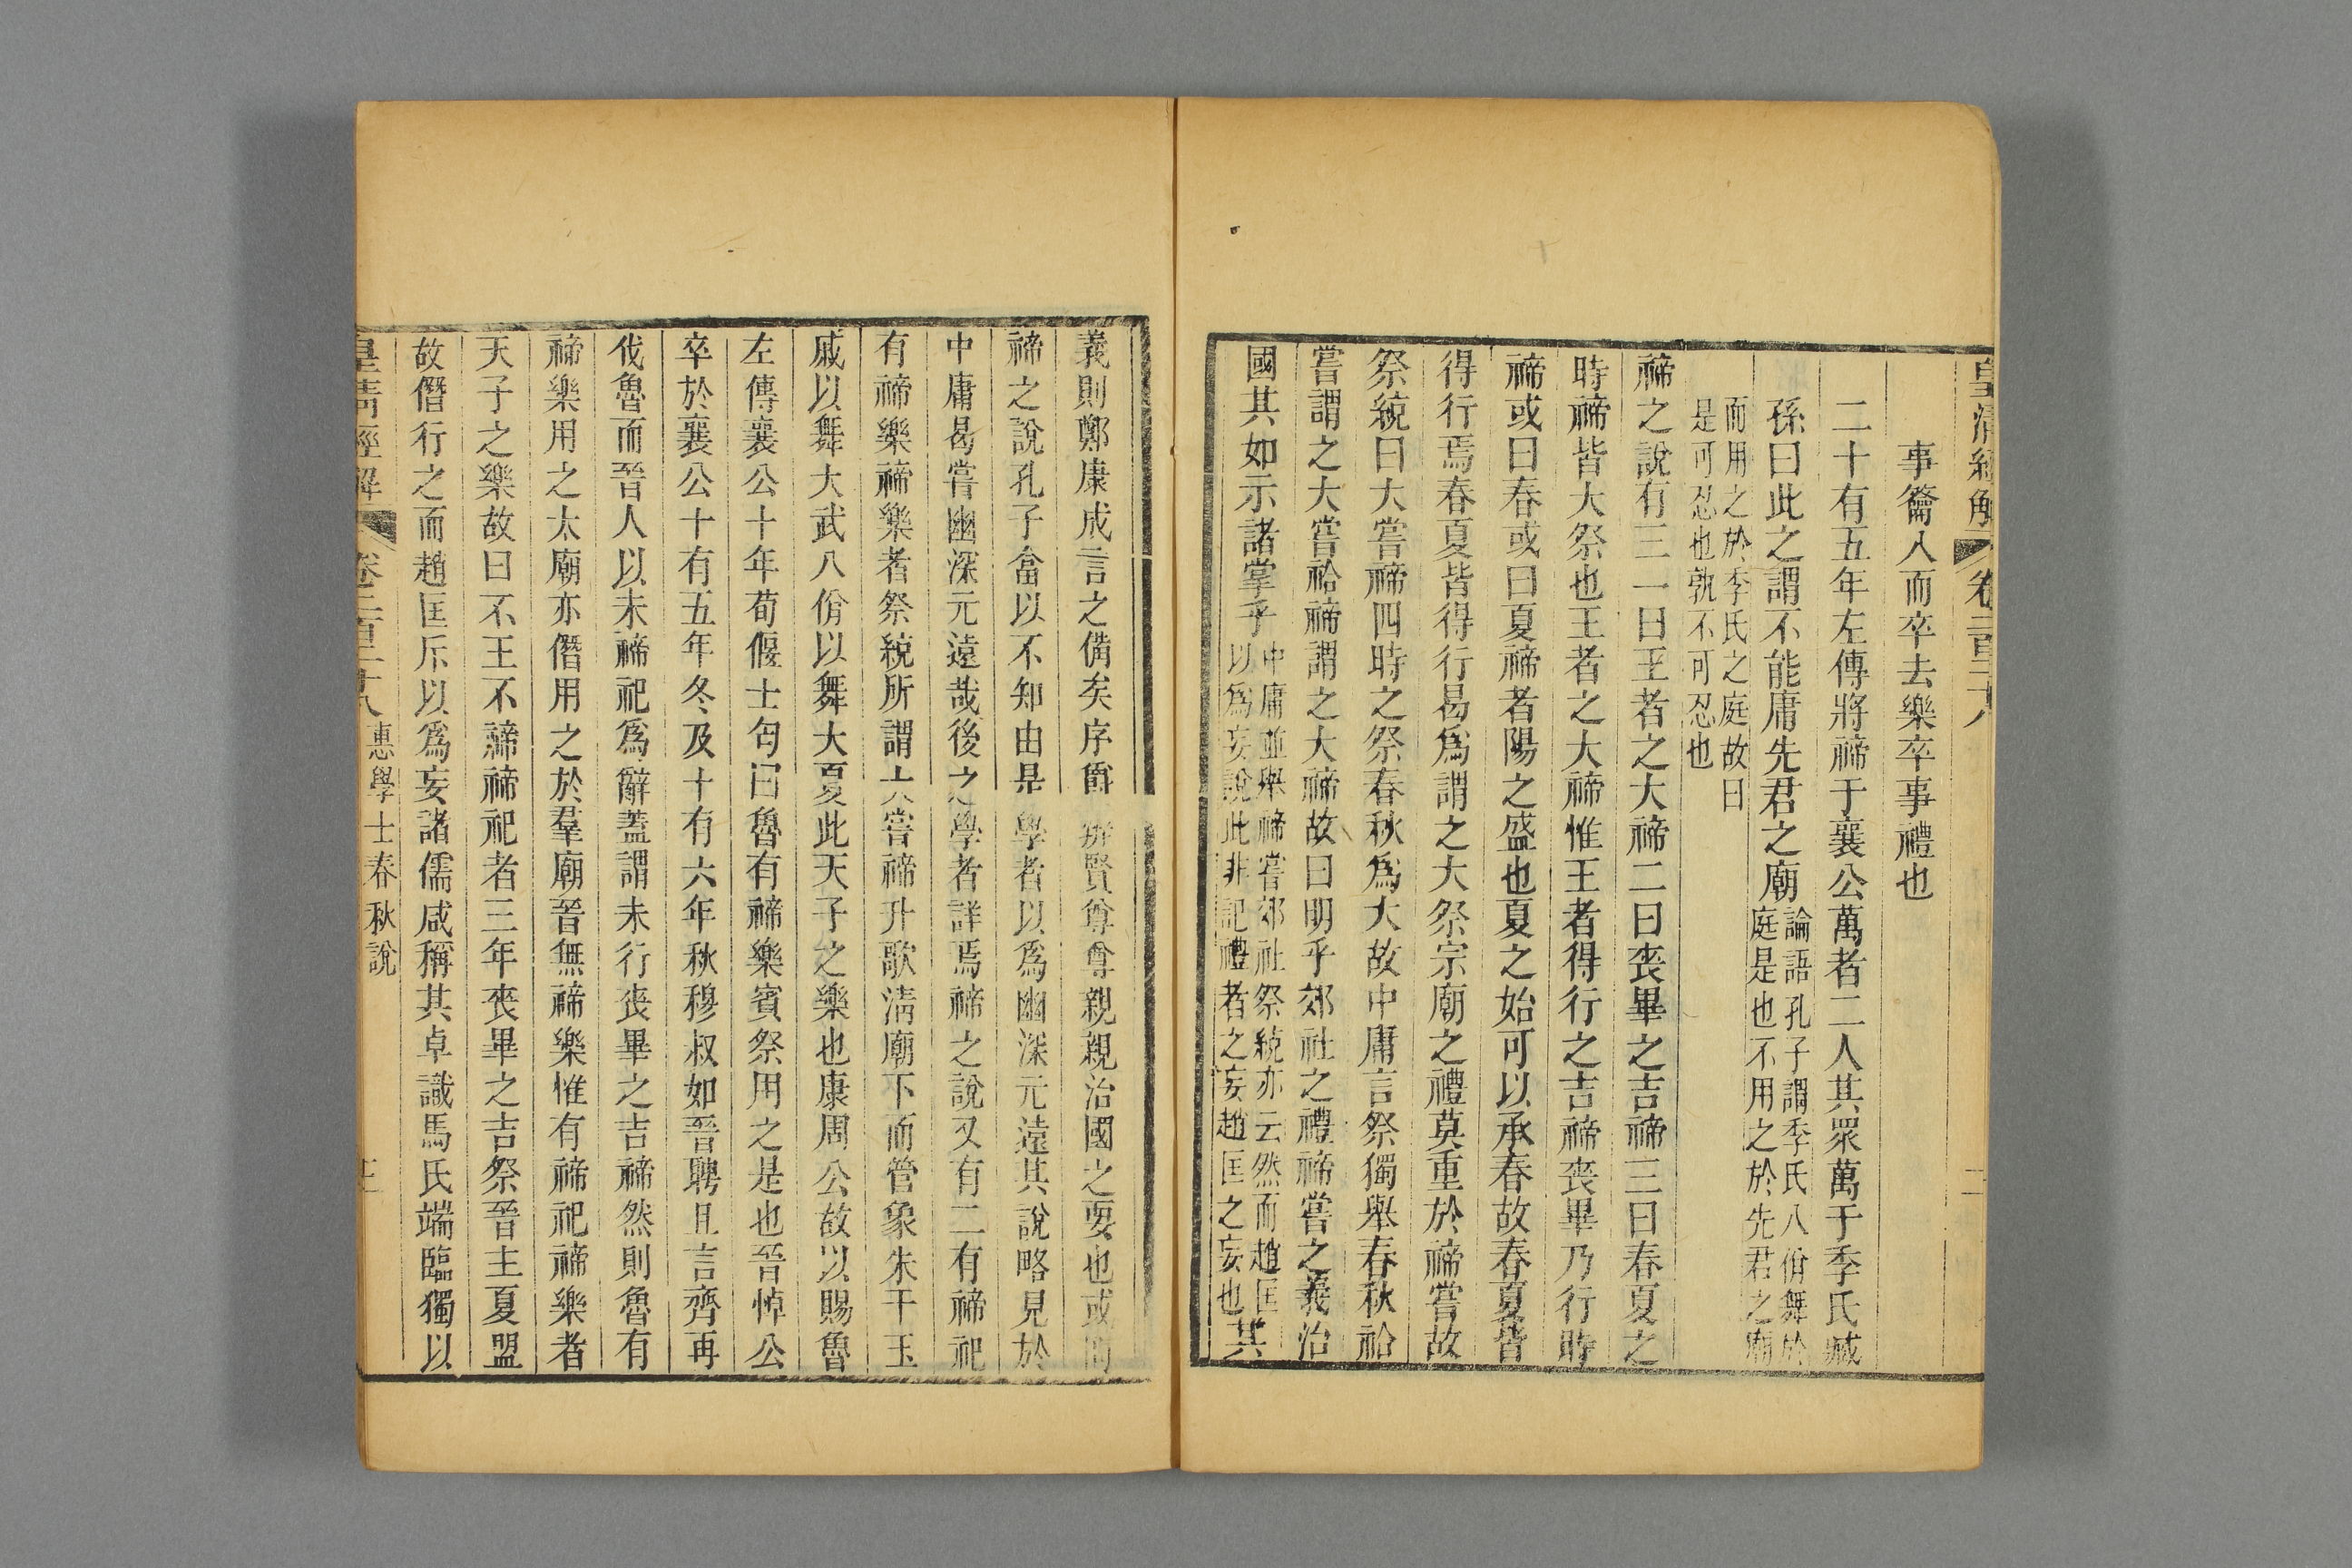 皇清經解 卷二百二十八 二
事籥入而卒去樂卒事禮也
二十有五年左傳將禘于襄公萬者二人其眾萬于季氏臧
孫曰此之謂不能庸先君之廟論語孔子謂季氏八佾舞於
庭是也不用之於先君之廟
而用之於季氏之庭故曰
是可忍也孰不可忍也
禘之說有三一曰王者之大禘二曰喪畢之吉禘三曰春夏之
時禘皆大祭也王者之大禘惟王者得行之吉禘喪畢乃行時
禘或曰春或曰夏禘者陽之盛也夏之始可以承春故春夏皆
得行焉春夏皆得行曷爲謂之大祭宗廟之禮莫重於禘嘗故
祭統曰大嘗禘四時之祭春秋爲大故中庸言祭獨舉春秋祫
嘗謂之大嘗祫禘謂之大禘故曰明乎郊社之禮禘嘗之義治
國其如示諸掌乎中庸並舉禘嘗郊社祭統亦云然而趙匡
以爲妄說此非記禮者之妄趙匡之妄也其
義則鄭康成言之備矣序爵辨賢尊尊親親治國之要也或問
禘之說孔子畣以不知由是學者以爲幽深元遠其說略見於
中庸曷嘗幽深元遠哉後之學者詳焉禘之說又有二有禘祀
有禘樂禘樂者祭統所謂大嘗禘升歌清廟下而管象朱干玉
戚以舞大武八佾以舞大夏此天子之樂也康周公故以賜魯
左傳襄公十年荀偃士匄曰魯有禘樂賓祭用之是也晉悼公
卒於襄公十有五年冬及十有六年秋穆叔如晉聘且言齊再
伐魯而晉人以未禘祀爲辭蓋謂未行喪畢之吉禘然則魯有
禘樂用之太廟亦僭用之於羣廟晉無禘樂惟有禘祀禘樂者
天子之樂故曰不王不禘禘祀者三年喪畢之吉祭晉主夏盟
故僭行之而趙匡斥以爲妄諸儒咸稱其卓識馬氏端臨獨以
皇清經解 卷二百二十八 惠學士春秋說